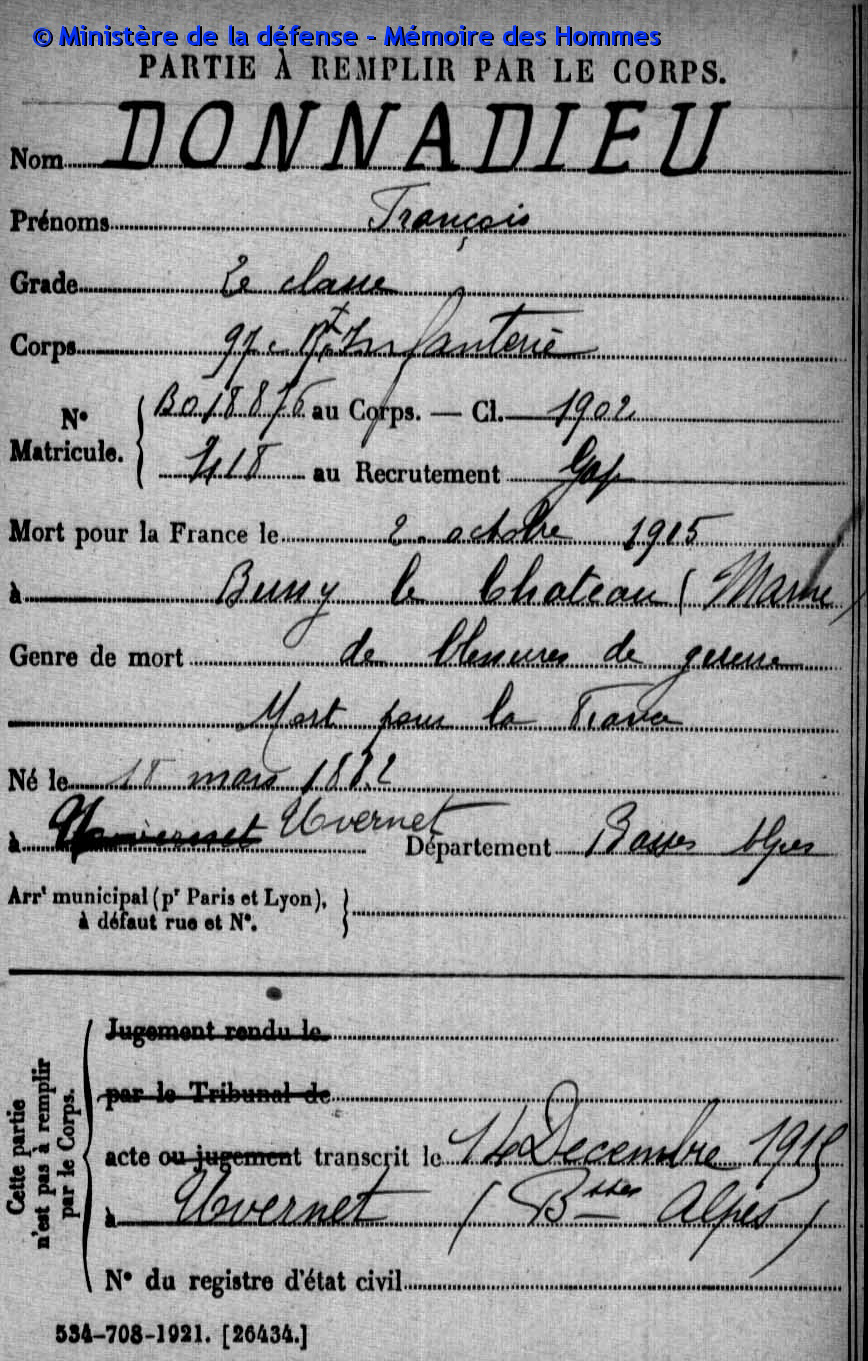 © Ministère de la défense - Mémoire des Hommes
PARTIE À REMPLIR PAR LE CORPS.
Nom DONNADIEU
Prénoms François
Grade 2e classe
Corps 97e Rt Infanterie
N° Matricule. BO18876 au Corps. — Cl. 1902
418 au Recrutement Gap
Mort pour la France le 2 octobre 1915
à Bussy le Chateau (Marne)
Genre de mort de blessures de guerre
Mort pour la France
Né le 18 mars 1882
à Uvernet Département Basses Alpes
Arrt municipal (pr Paris et Lyon),
à défaut rue et N°.
Cette partie n'est pas à remplir par le Corps.
Jugement rendu le
par le Tribunal de
acte ou jugement transcrit le 14 Decembre 1915
à Uvernet (Bsses Alpes)
N° du registre d'état civil
534-708-1921. [26434.]